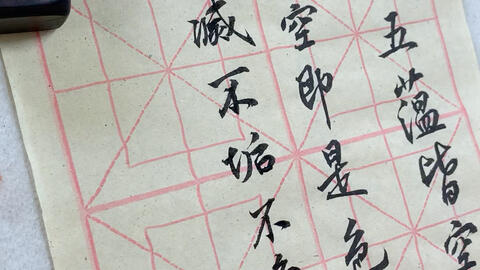 五蘊皆空
空即是色
滅不垢不